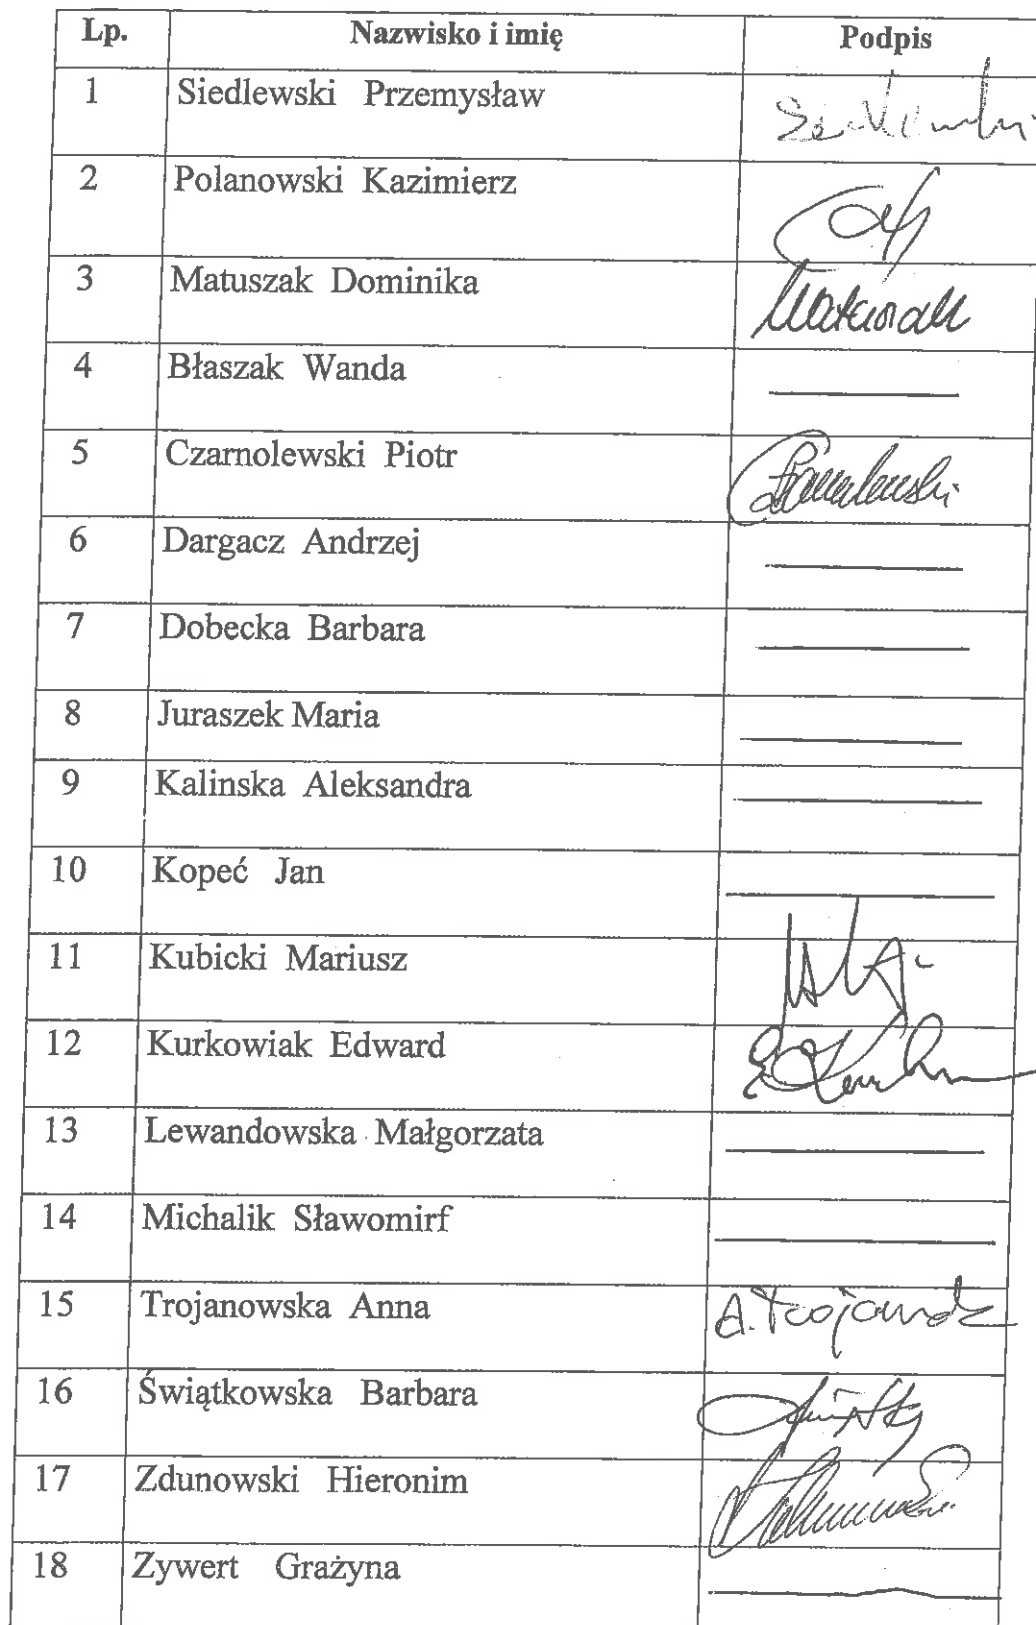 Lp. Nazwisko i imię Podpis
1 Siedlewski Przemysław
2 Polanowski Kazimierz
3 Matuszak Dominika Matuszak
4 Błaszak Wanda
5 Czarnolewski Piotr
6 Dargacz Andrzej
7 Dobecka Barbara
8 Juraszek Maria
9 Kalinska Aleksandra
10 Kopeć Jan
11 Kubicki Mariusz
12 Kurkowiak Edward
13 Lewandowska Małgorzata
14 Michalik Sławomirf
15 Trojanowska Anna A. Trojanowska
16 Świątkowska Barbara
17 Zdunowski Hieronim
18 Zywert Grażyna